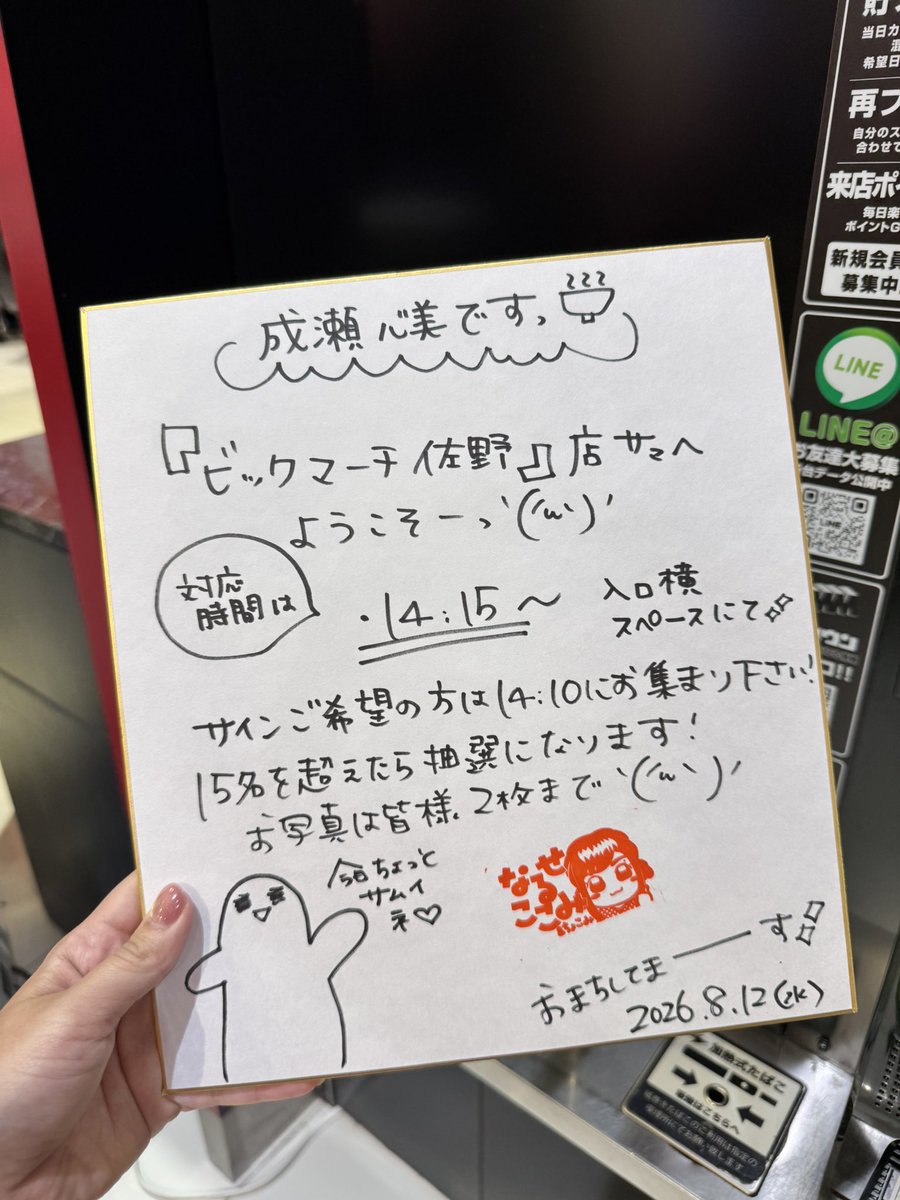 成瀬心美です。
『ビックマーチ佐野』店サマへ
ようこそーっ
対応
時間は
・14:15〜
入口横
スペースにて
サインご希望の方は14:10にお集まり下さい!
15名を超えたら抽選になります!
お写真は皆様、2枚まで
今日ちょっと
サムイ
ネ♡
なるせ
ここみ
おまちしてまーーす
2026.8.12(水)
当日カ
希望日
再プ
自分のス
合わせて
来店ポイ
毎日楽
ポイントG
新規会員
募集中
LINE
LINE@
お友達大募集
台データ公開中
LINE